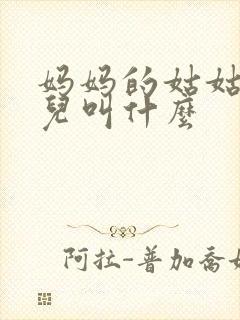 妈妈的姑姑
兒叫什麼
阿拉-普加喬